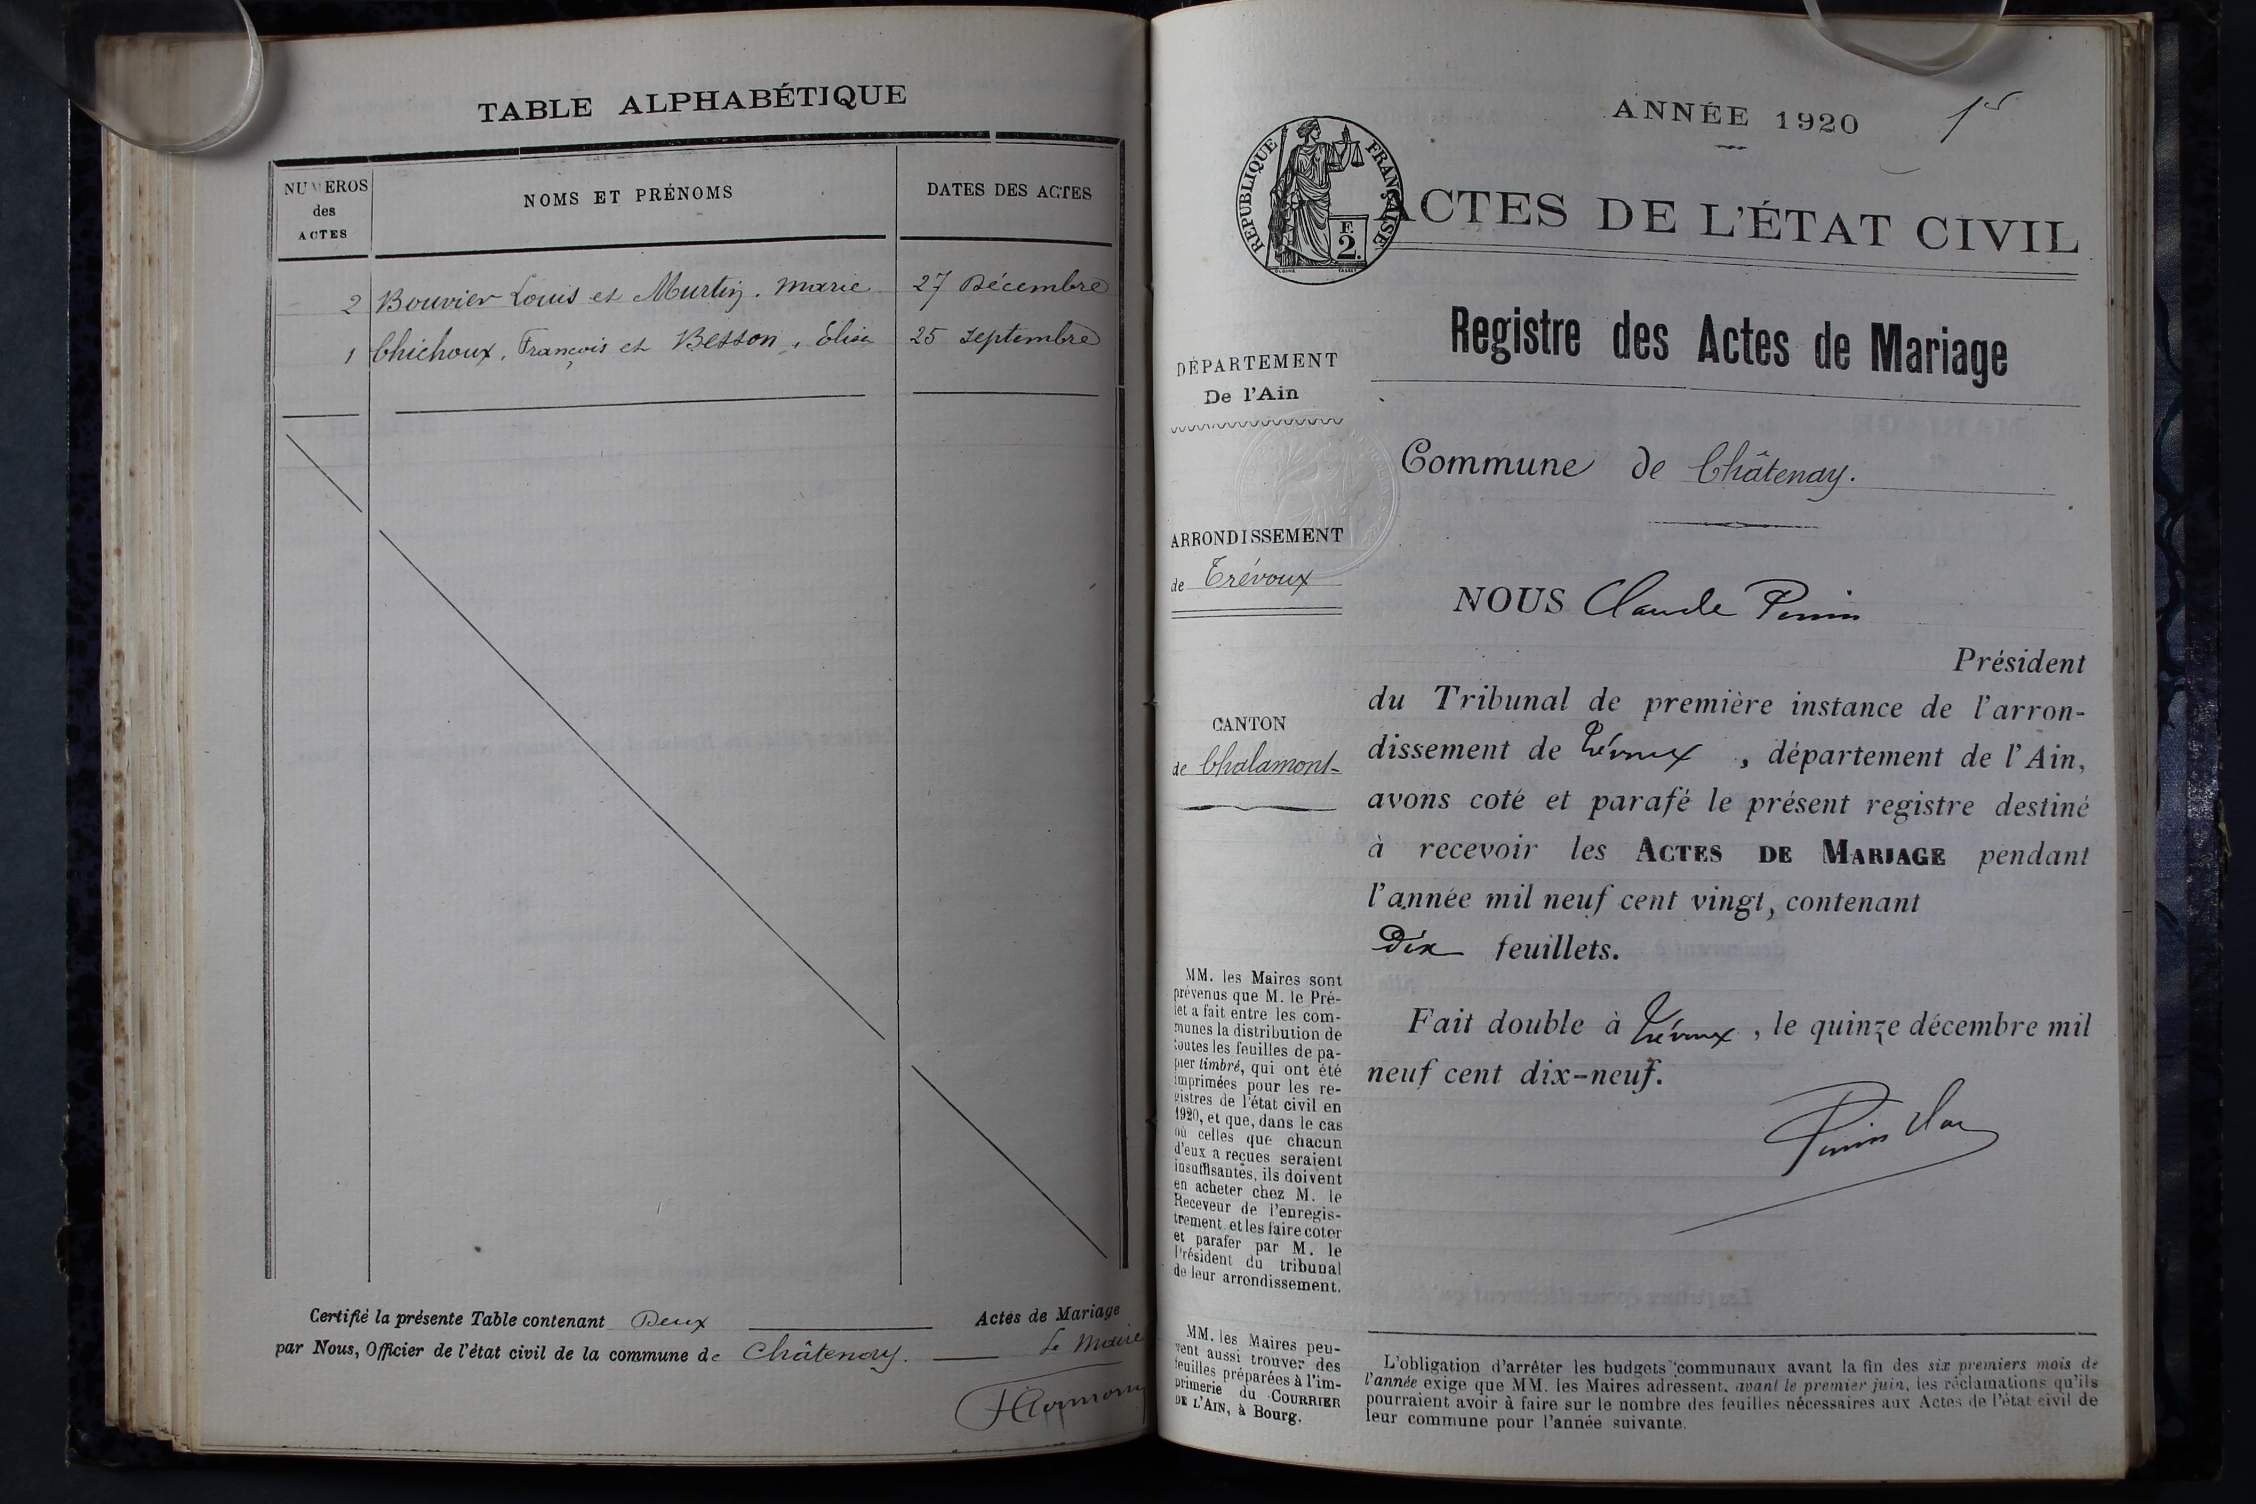 TABLE ALPHABÉTIQUE
NUMEROS
des
ACTES
NOMS ET PRÉNOMS
DATES DES ACTES
2 Bouvier Louis et Murtin. Marie 27 Décembre
1 Chichoux, François et Besson, Elisa 25 Septembre
Certifié la présente Table contenant Deux Actes de Mariage
par Nous, Officier de l'état civil de la commune de Châtenay. Le Maire
ANNÉE 1920
RÉPUBLIQUE FRANÇAISE
F.
2.
ACTES DE L'ÉTAT CIVIL
Registre des Actes de Mariage
DÉPARTEMENT
De l'Ain
Commune de Châtenay.
ARRONDISSEMENT
de Trévoux
CANTON
de Chalamont
NOUS Claude Perrin
Président
du Tribunal de première instance de l'arron-
dissement de Trévoux, département de l'Ain,
avons coté et parafé le présent registre destiné
à recevoir les ACTES DE MARIAGE pendant
l'année mil neuf cent vingt, contenant
Dix feuillets.
Fait double à Trévoux, le quinze décembre mil
neuf cent dix-neuf.
MM. les Maires sont
prévenus que M. le Pré-
fet a fait entre les com-
munes la distribution de
toutes les feuilles de pa-
pier timbré, qui ont été
imprimées pour les re-
gistres de l'état civil en
1920, et que, dans le cas
où celles que chacun
d'eux a reçues seraient
insuffisantes, ils doivent
en acheter chez M. le
Receveur de l'enregis-
trement et les faire coter
et parafer par M. le
Président du tribunal
de leur arrondissement.
MM. les Maires peu-
vent aussi trouver des
feuilles préparées à l'im-
primerie du COURRIER
DE L'AIN, à Bourg.
L'obligation d'arrêter les budgets communaux avant la fin des six premiers mois de
l'année exige que MM. les Maires adressent, avant le premier juin, les réclamations qu'ils
pourraient avoir à faire sur le nombre des feuilles nécessaires aux Actes de l'état civil de
leur commune pour l'année suivante.